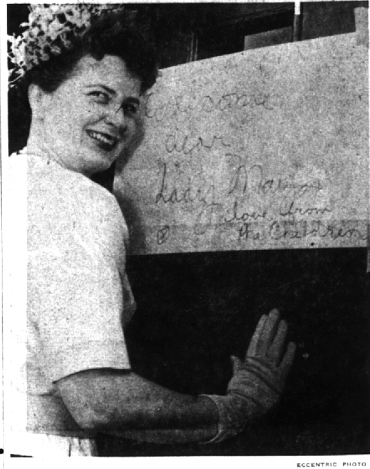 Welcome
dear
Lady
love from
the Children
ECCENTRIC PHOTO